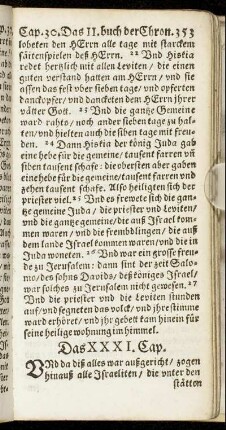 Cap. 30. Das II. buch der Chron. 353
lobeten den HErrn alle tage mit starcken
säitenspielen deß HErrn. 22 Vnd Hiskia
redet hertzlich mit allen Leviten / die einen
guten verstand hatten am HErrn / vnd sie
assen das fest vber sieben tage / vnd opfferten
danckopfer / vnd danckten dem HErrn jhrer
vätter Gott. 23 Vnd die gantze Gemeine
ward rahts / noch ander sieben tage zu hal-
ten / vnd hielten auch die sieben tage mit freu-
den. 24 Dann Hiskia der könig Juda gab
eine hebe für die gemeine / tausent farren vñ
siben tausent schafe: die obersten aber gaben
eine hebe für die gemeine / tausent farren vnd
zehen tausent schafe. Also heiligten sich der
priester viel. 25 Vnd es frewete sich die gan-
tze gemeine Juda / die priester vnd Leviten /
vnd die gantze gemeine / die auß Israel kom-
men waren / vnd die frembdlingen / die auß
dem lande Israel kommen waren / vnd die in
Juda woneten. 26 Vnd war ein grosse freu-
de zu Jerusalem: dann sint der zeit Salo-
mo / des sohns Davids / deß königes Israel /
war solches zu Jerusalem nicht gewesen. 27
Vnd die priester vnd die Leviten stunden
auf / vnd segneten das volck / vnd jhre stimme
ward erhöret / vnd jhr gebett kam hinein für
seine heilige wohnung im himmel.
Das XXXI. Cap.
VNd da diß alles war außgericht / zogen
hinauß alle Israeliten / die vnter den
stätten